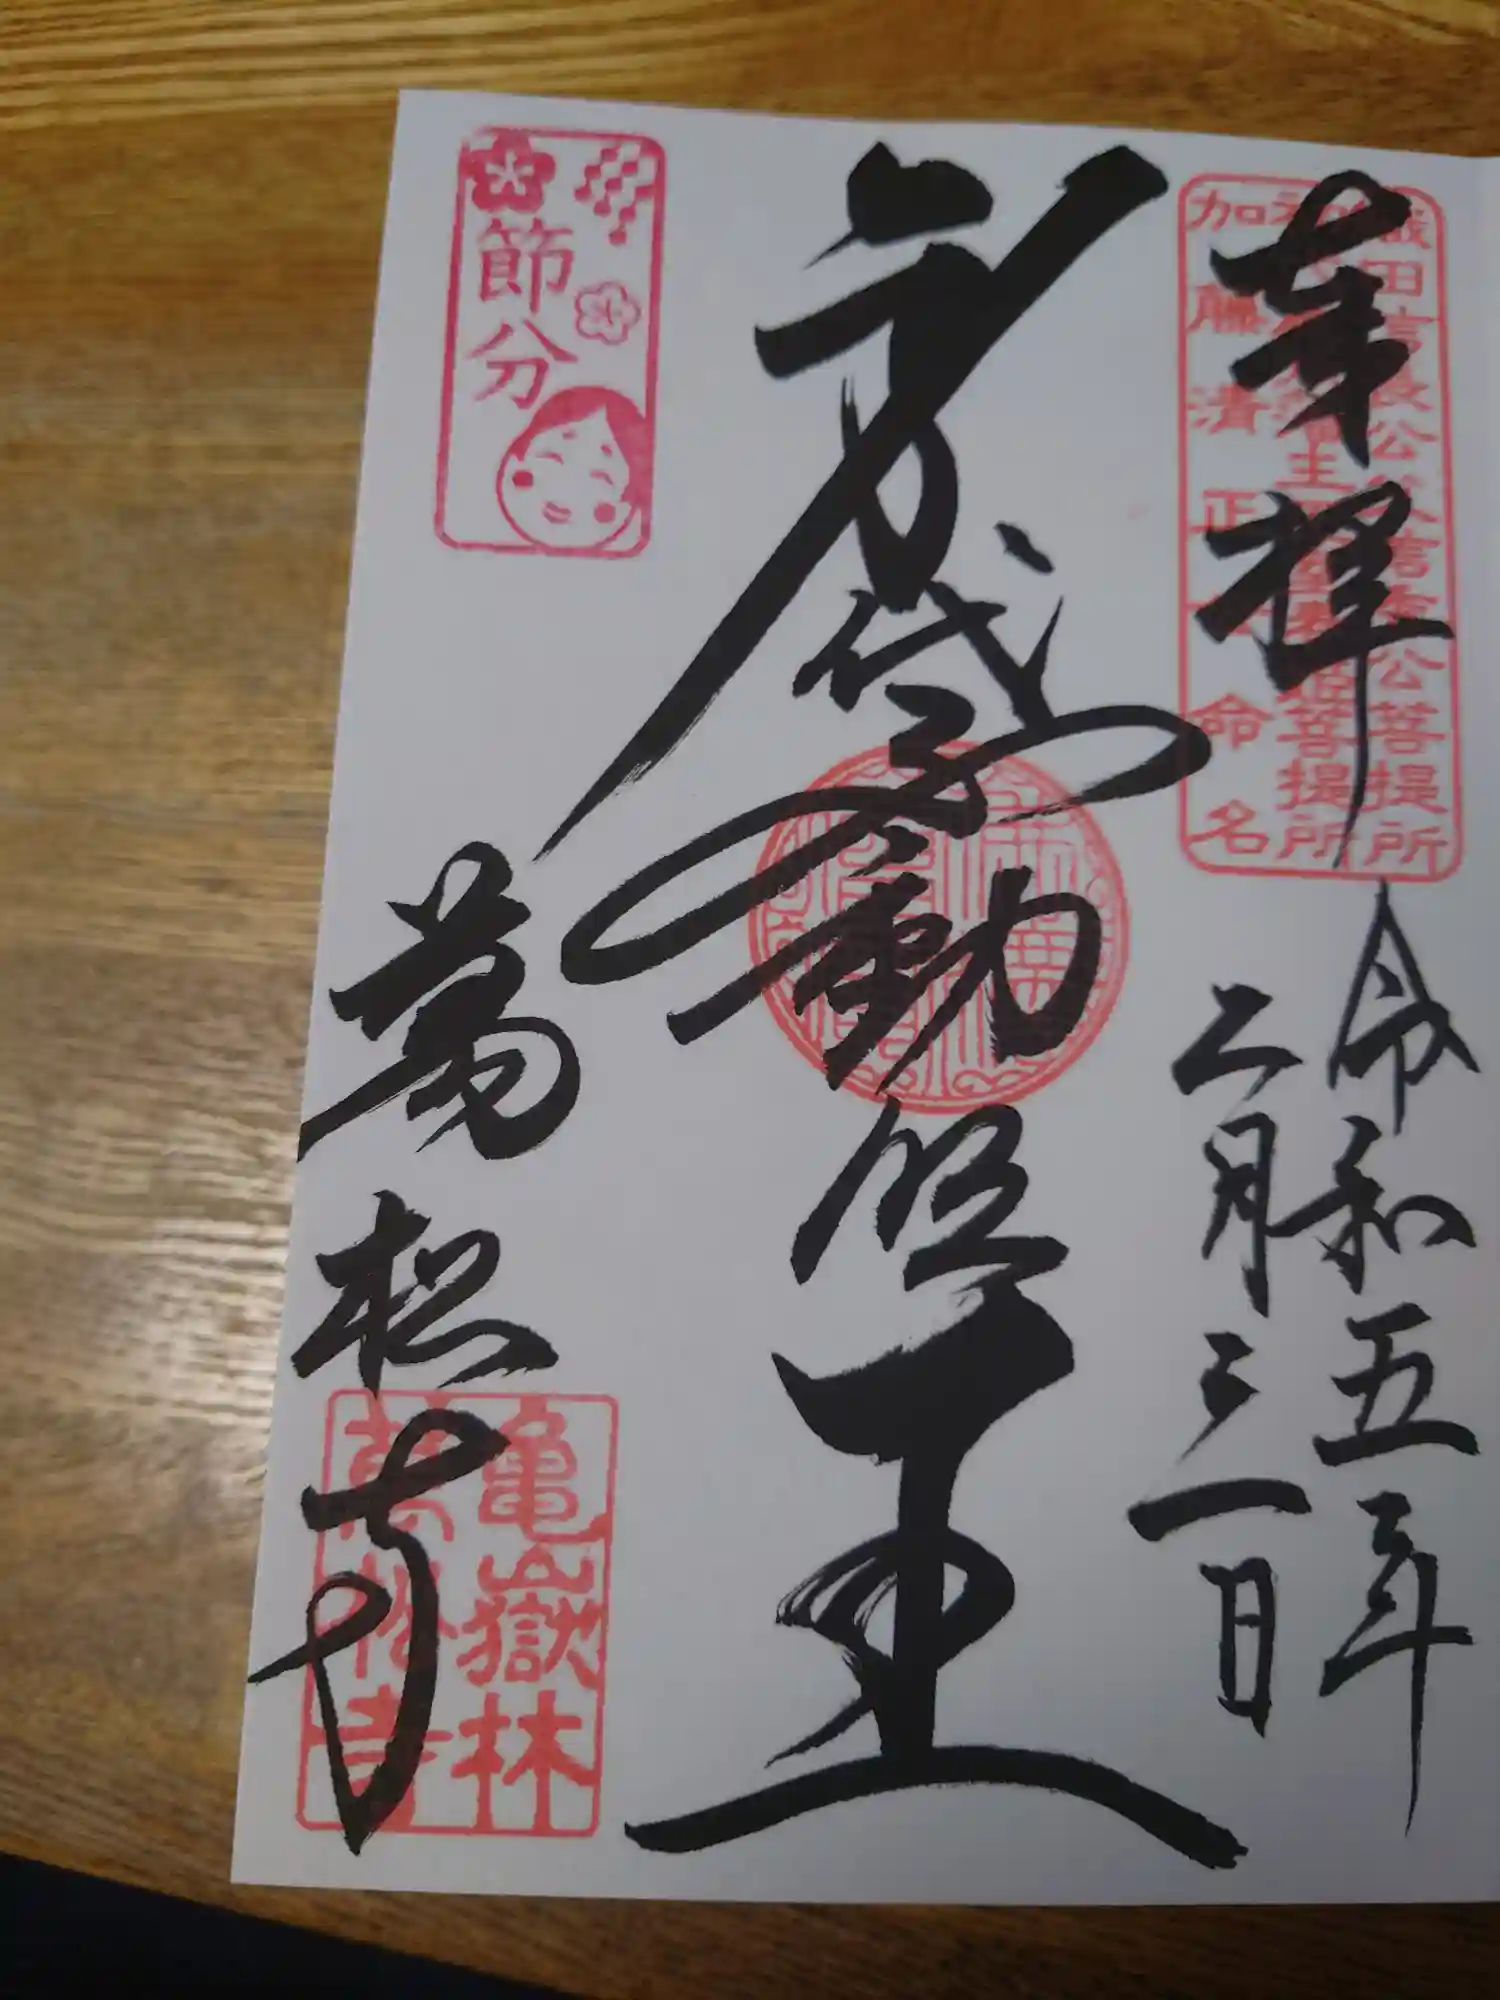 奉拝
令和五年
二月三日
織田信長公父信秀公菩提所
菩提所
加藤清正公命名
身代不動明王
節分
萬松寺
亀嶽林
萬松寺